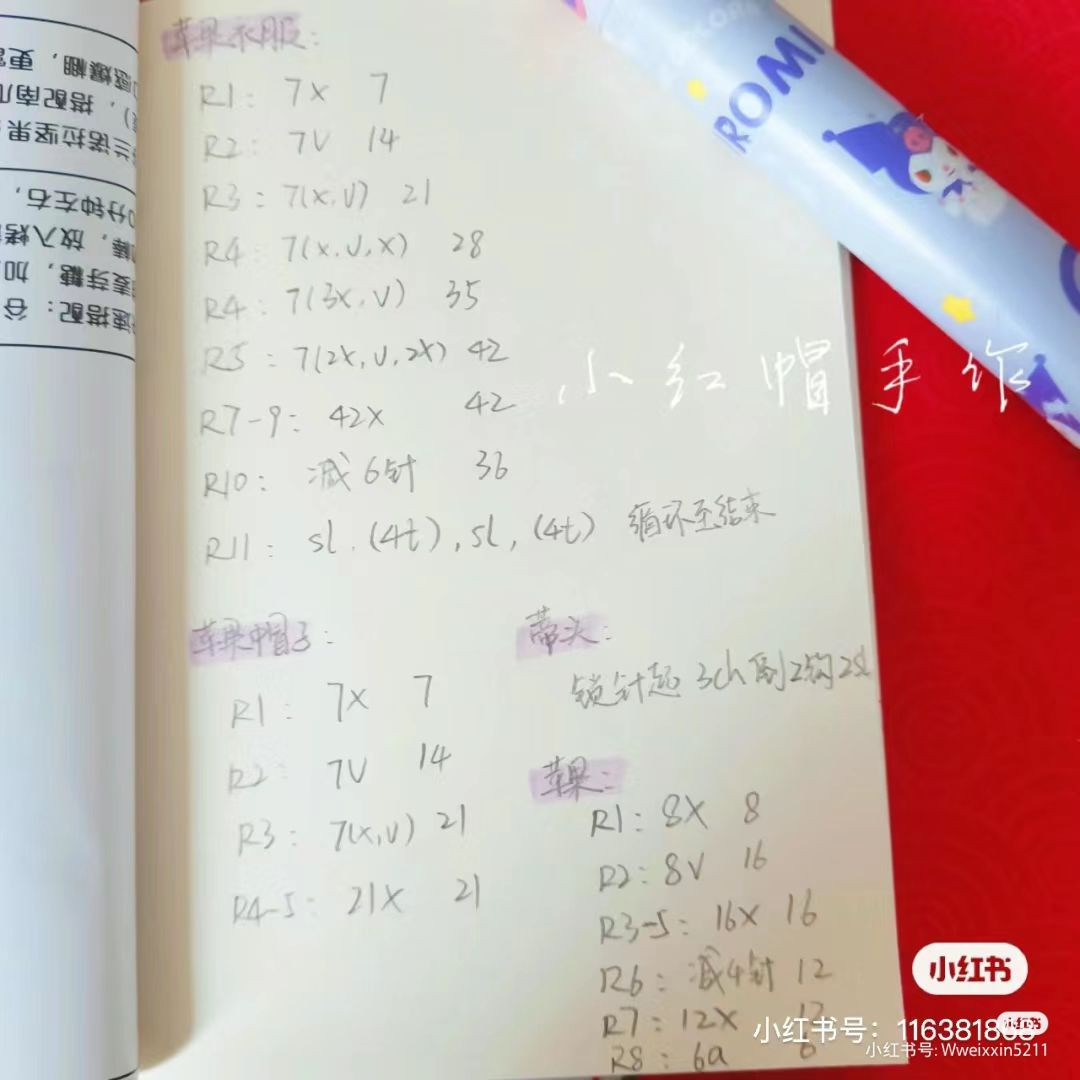 苹果衣服:
R1: 7X 7
R2: 7V 14
R3: 7(X,V) 21
R4: 7(X,V,X) 28
R4: 7(3X,V) 35
R5: 7(2X,V,2X) 42
R7-9: 42X 42
R10: 减6针 36
R11: sl.(4t),sl,(4t) 循环至结束
小红帽手作
苹果帽子:
R1: 7X 7
R2 7V 14
R3: 7(X,V) 21
R4-5: 21X 21
蒂头:
锁针起3ch 倒2钩2sl
苹果:
R1: 8X 8
R2: 8V 16
R3-5: 16X 16
R6: 减4针 12
R7: 12X 12
R8: 6a 6
ROMI
谷
加
放入烤
0分钟左右,
兰诺拉坚果
搭配南瓜
感爆棚,更
小红书
小红书号:
小红书号: Wweixxin5211